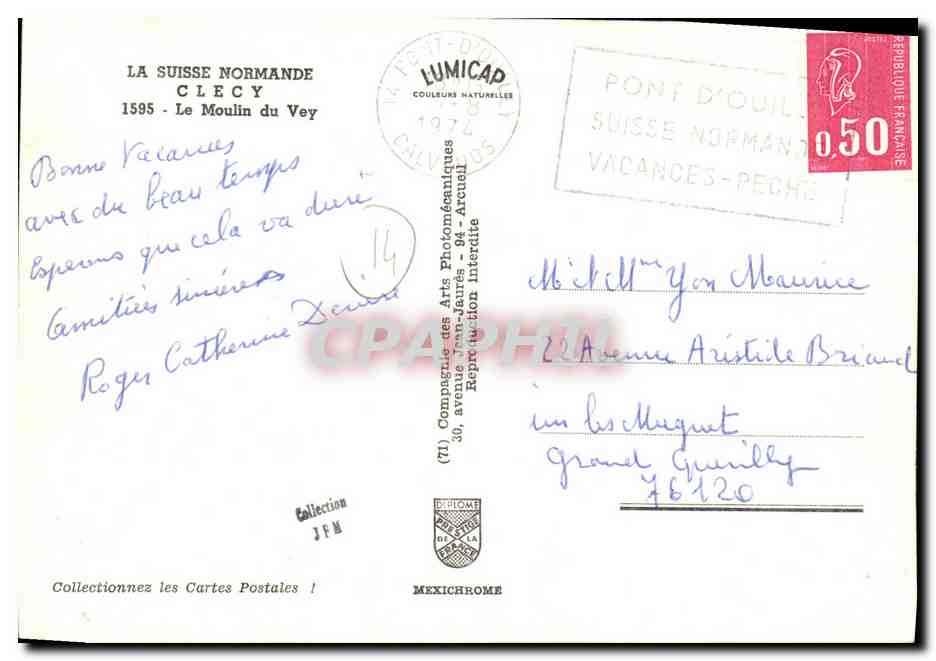 LA SUISSE NORMANDE
CLECY
1595 - Le Moulin du Vey
Bonne Vacances
avec du beau temps
Esperons que cela va dure
Amitiés sincères
Roger Catherine Denise
14
LUMICAP
COULEURS NATURELLES
14 PONT-D'OUILLY
1974
CALVADOS
PONT D'OUIL
SUISSE NORMAN
VACANCES-PECHE
POSTES
0,50
REPUBLIQUE FRANÇAISE
(71) Compagnie des Arts Photomécaniques
30, avenue Jean-Jaurès - 94 - Arcueil
Reproduction interdite
CPAPHIL
M et Mme Yon Maurice
22 Avenue Aristide Briand
im les Muguet
Grand Quevilly
76120
Collection
JFM
DIPLOME
PRESTIGE
DE LA
FRANCE
Collectionnez les Cartes Postales !
MEXICHROME